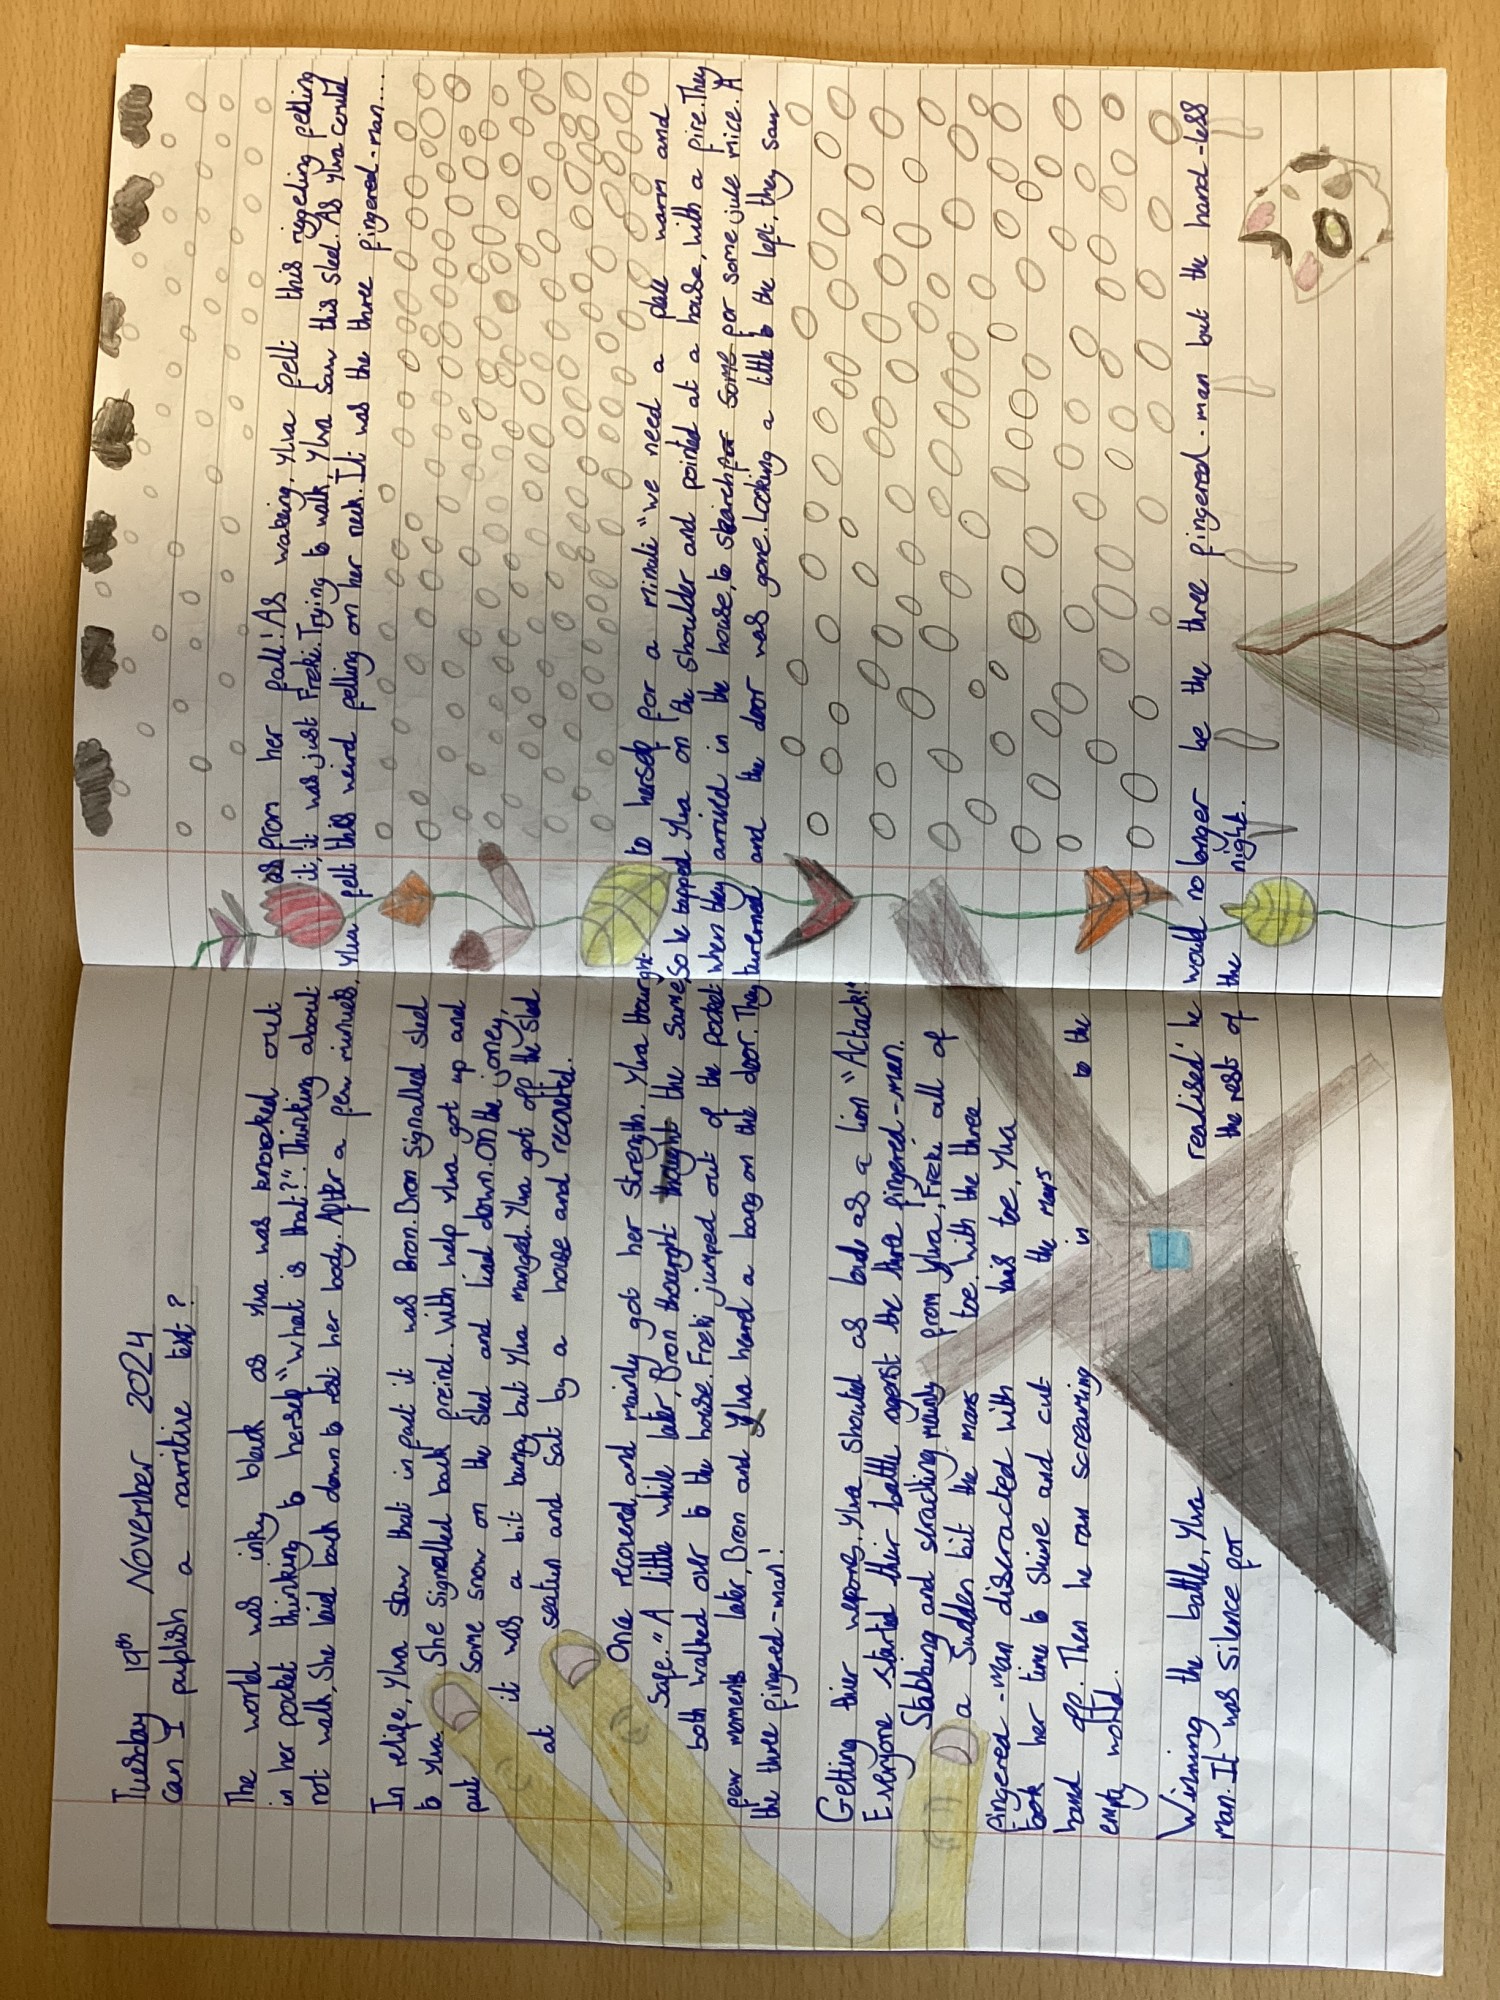 Tuesday 19th November 2024
Can I publish a narritive text?
The world was inky black as Ylva was knocked out as from her fall! As waking, Ylva felt this rigeling felling
in her pocket thinking to herself "what is that?". Thinking about it, it was just Freki. Trying to walk, Ylva saw this sled. As Ylva could
not walk, She laid back down to rest her body. After a few minuets, Ylva felt this weird felling on her neck. It was the three fingered-man....
In relife, Ylva saw that in fact it was Bron. Bron signalled sled
to Ylva. She signalled back freind. With help Ylva got up and
put some snow on the sled and liad down. On the joney,
it was a bit bumpy but Ylva manged. Ylva got off the sled
at seatun and sat by a house and recoverted.
Once recoverd, and mainly got her strength. Ylva thourght to herself for a minute "we need a place warm and
safe." A little while later, Bron thought the same, So he tapped Ylva on the shoulder and pointed at a house, with a fire. They
both walked over to the house. Freki jumped out of the pocket when they arrived in the house, to search for some for some juice mice. A
few moments later, Bron and Ylva heard a bang on the door. They turerned and the door was gone. Looking a little to the left, they saw
the three fingered-man!
Getting thier wepons, Ylva shouted as loud as a lion "Actack!"
Everyone started their battle agenst the three fingered-man.
Stabbing and scraching mainly from Ylva, Freki all of
a sudden bit the mans toe. With the three
fingered-man discracted with his toe, Ylva
took her time to shine and cut the mans
hand off. Then he ran screaming in to the
empty wold.
Winning the battle, Ylva realised he would no longer be the three fingered-man but the hand-less
man. It was silence for the rest of the night.